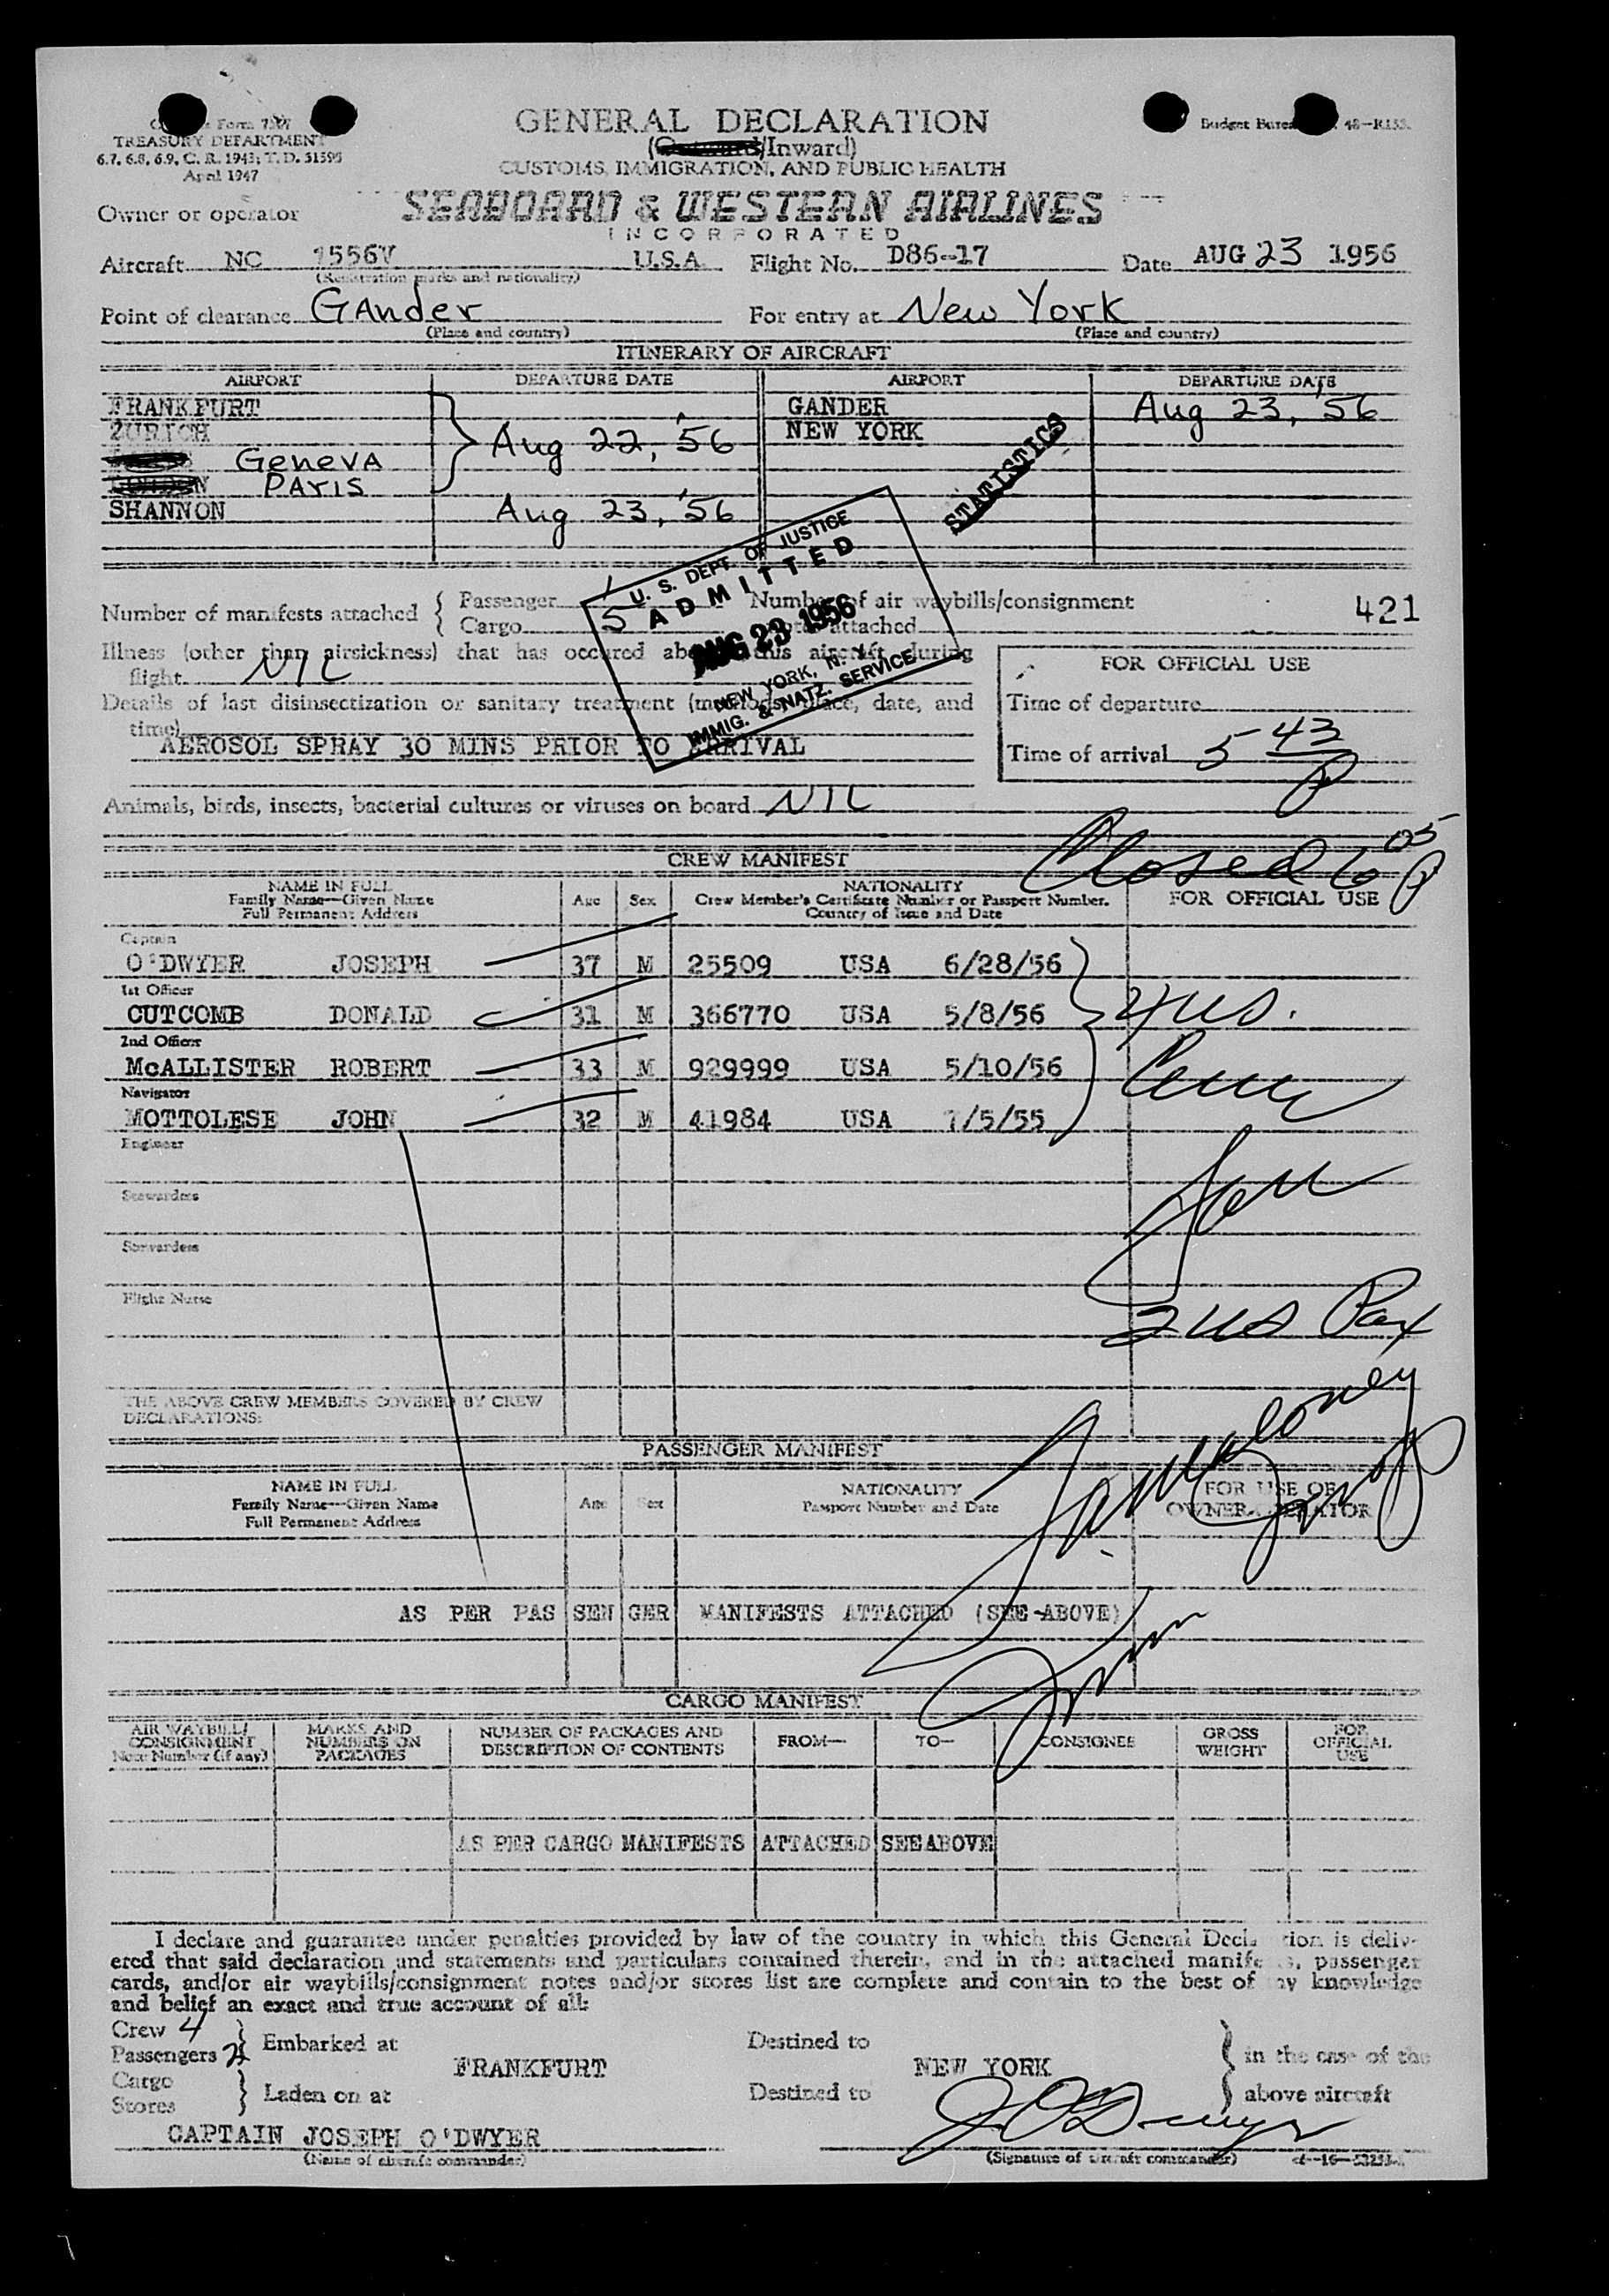 Form 7507
TREASURY DEPARTMENT
6.7, 6.8, 6.9, C. R. 1943; T. D. 51595
April 1947
GENERAL DECLARATION
(Outward/Inward)
CUSTOMS, IMMIGRATION, AND PUBLIC HEALTH
Owner or operator SEABOARD & WESTERN AIRLINES
INCORPORATED
Aircraft NC 1556V U.S.A. Flight No. D86-17 Date AUG 23 1956
(Registration marks and nationality)
Point of clearance GANder For entry at New York
(Place and country) (Place and country)
ITINERARY OF AIRCRAFT
AIRPORT DEPARTURE DATE AIRPORT DEPARTURE DATE
FRANKFURT GANDER Aug 23, '56
ZURICH Aug 22, '56 NEW YORK
GenevA
PAris
SHANNON Aug 23, '56
STATISTICS
U. S. DEPT. OF JUSTICE
ADMITTED
AUG 23 1956
NEW YORK, N. Y.
IMMIG. & NATZ. SERVICE
Number of manifests attached { Passenger 1 Number of air waybills/consignment 421
Cargo 5 attached
Illness (other than airsickness) that has occured this aircraft during
flight NIL
FOR OFFICIAL USE
Time of departure
Time of arrival 5 43 P
Details of last disinsectization or sanitary treatment (methods, place, date, and
time)
AEROSOL SPRAY 30 MINS PRIOR TO ARRIVAL
Animals, birds, insects, bacterial cultures or viruses on board NIL
Closed 6 05 P
CREW MANIFEST
NAME IN FULL Age Sex NATIONALITY FOR OFFICIAL USE
Family Name—Given Name Crew Member's Certificate Number or Passport Number.
Full Permanent Address Country of Issue and Date
Captain
O'DWYER JOSEPH 37 M 25509 USA 6/28/56
1st Officer
CUTCOMB DONALD 31 M 366770 USA 5/8/56 4 US.
2nd Officer
McALLISTER ROBERT 33 M 929999 USA 5/10/56
Navigator
MOTTOLESE JOHN 32 M 41984 USA 7/5/55
Engineer
Stewardess
Stewardess
Flight Nurse
2 US Pax
THE ABOVE CREW MEMBERS COVERED BY CREW
DECLARATIONS:
PASSENGER MANIFEST
NAME IN FULL Age Sex NATIONALITY FOR USE OF
Family Name—Given Name Passport Number and Date OWNER OPERATOR
Full Permanent Address
AS PER PASSENGER MANIFESTS ATTACHED (SEE ABOVE)
CARGO MANIFEST
AIR WAYBILL/ MARKS AND NUMBER OF PACKAGES AND FROM— TO— CONSIGNEE GROSS FOR
CONSIGNMENT NUMBERS ON DESCRIPTION OF CONTENTS WEIGHT OFFICIAL
Note Number (if any) PACKAGES USE
AS PER CARGO MANIFESTS ATTACHED SEE ABOVE
I declare and guarantee under penalties provided by law of the country in which this General Declaration is deliv-
ered that said declaration and statements and particulars contained therein, and in the attached manifests, passenger
cards, and/or air waybills/consignment notes and/or stores list are complete and contain to the best of my knowledge
and belief an exact and true account of all:
Crew 4 } Embarked at Destined to } in the case of the
Passengers 2 FRANKFURT NEW YORK
Cargo } Laden on at Destined to above aircraft
Stores
CAPTAIN JOSEPH O'DWYER
(Name of aircraft commander) (Signature of aircraft commander)